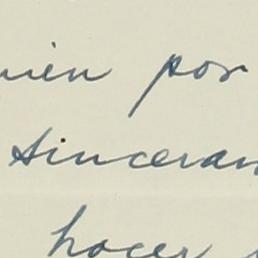 uien por
sinceram
hacer